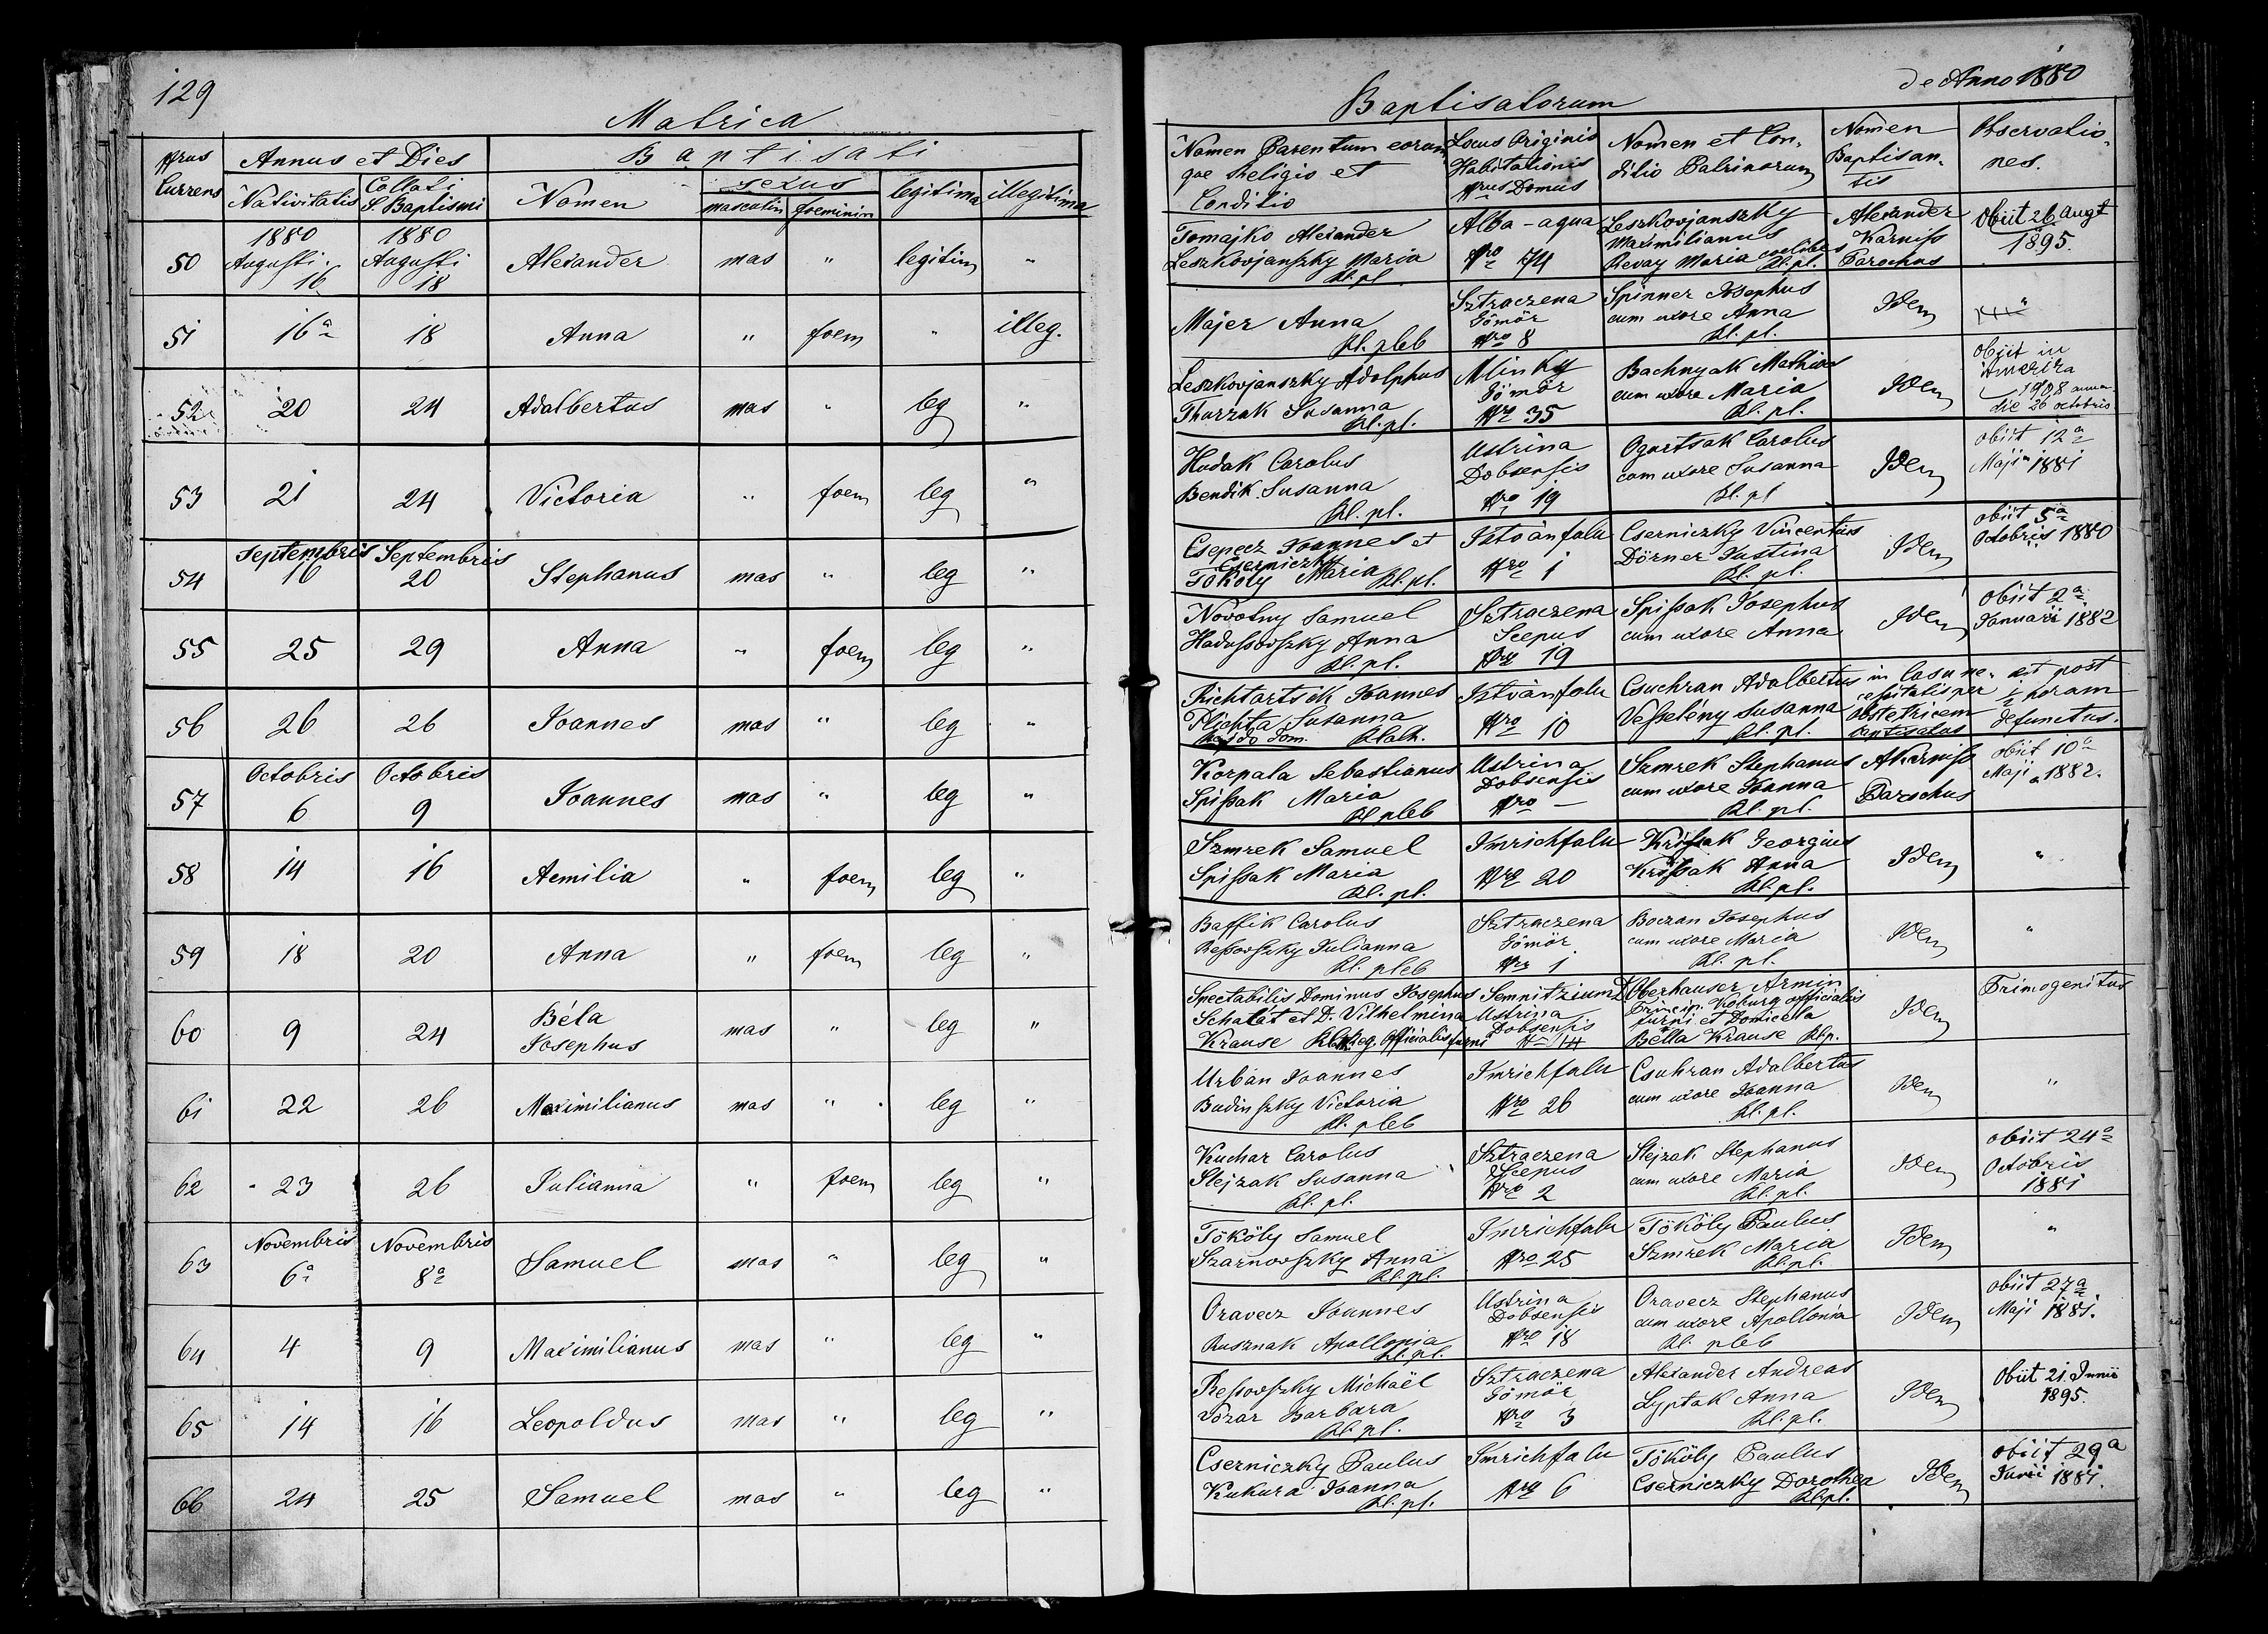 129
Matrica
Nrus Currens
Annus et Dies
Nativitatis
Collati S. Baptismi
Baptisati
Nomen
sexus
masculin foeminin
legitima illegitima
Baptisatorum
de Anno 1880
Nomen Parentum eorum
que Religio et
Conditio
Locus Originis
Habitationis
Nrus Domus
Nomen et Con-
ditio Patrinorum
Nomen
Baptisan-
tis
Observatio-
nes.
50 1880 Augusti 16 1880 Augusti 18 Alexander mas " legitim "
Tomajko Alexander
Leszkovjanszky Maria
Rl. pl.
Alba-aqua
Nro 74
Leszkovjanszky
Maximilianus
Revay Maria coelibes
Rl. pl.
Alexander
Karniss
Parochus
Obiit 26 Augt
1895.
51 16a 18 Anna " foem " illeg.
Majer Anna
Rl. pleb
Sztraczena
Gömör
Nro 8
Spinner Josephus
cum uxore Anna
Rl. pl.
Idem
"
52 20 24 Adalbertus mas " leg "
Leszkovjanszky Adolphus
Thurzak Susanna
Rl. pl.
Mlinky
Gömör
Nro 35
Bachnyak Mathias
cum uxore Maria
Rl. pl.
Idem
obiit in
America
1908
die 26 octobris
53 21 24 Victoria " foem leg "
Hudak Carolus
Bendik Susanna
Rl. pl.
Ustrina
Dobsensis
Nro 19
Ogurtsak Carolus
cum uxore Susanna
Rl. pl
Idem
obiit 12a
Maji 1881
54 Septembris 16 Septembris 20 Stephanus mas " leg "
Csepecz Joannes et
Cserniczky
Tököly Maria Rl. pl.
Istvánfalu
Nro 1
Cserniczky Vincentius
Dörner Justina
Rl. pl.
Idem
obiit 5a
Octobris 1880
55 25 29 Anna " foem leg "
Novotny Samuel
Hadussovszky Anna
Rl. pl.
Sztraczena
Scepus
Nro 19
Spissak Josephus
cum uxore Anna
Idem
Obiit 2a
Januarii 1882
56 26 26 Joannes mas " leg "
Richtartsik Joannes
Plichta Susanna
Istvánfalu
Nro 10
Csuchran Adalbertus
Vesselény Susanna
Rl. pl.
in casu ne-
cessitatis per
obstetricem
baptisatus
et post
½ horam
defunctus.
57 Octobris 6 Octobris 9 Joannes mas " leg "
Korpala Sebastianus
Spissak Maria
Rl pleb
Ustrina
Dobsensis
Nro —
Szmrek Stephanus
cum uxore Joanna
Rl. pl.
A Karniss
Parochus
obiit 10a
Maji 1882.
58 14 16 Aemilia " foem leg "
Szmrek Samuel
Spissak Maria
Rl. pl.
Imrichfalu
Nro 20
Krissak Georgius
Krissak Anna
Rl. pl.
Idem
"
59 18 20 Anna " foem leg "
Baffik Carolus
Ressovszky Julianna
Rl. pleb
Sztraczena
Gömör
Nro 1
Boczan Josephus
cum uxore Maria
Rl. pl.
Idem
"
60 9 24 Béla Josephus mas " leg "
Spectabilis Dominus Josephus
Schalát et D. Vilhelmina
Krause Officialis furni
Semnitzium
Ustrina
Dobsensis
Oberhauser Armin
Princip. Koburg officialis
furni et Domicella
Bella Krause Rlp.
Idem
Primogenitus
61 22 26 Maximilianus mas " leg "
Urbán Joannes
Budinszky Victoria
Rl. pleb
Imrichfalu
Nro 26
Csuhran Adalbertus
cum uxore Joanna
Rl. pl.
Idem
"
62 23 26 Julianna " foem leg "
Kuchar Carolus
Slejzak Susanna
Rl. pl.
Sztraczena
Scepus
Nro 2
Slejzak Stephanus
cum uxore Maria
Rl. pl.
Idem
obiit 24a
Octobris
1881
63 Novembris 6a Novembris 8a Samuel mas " leg "
Tököly Samuel
Szarnovszky Anna
Rl. pl.
Imrichfalu
Nro 25
Tököly Paulus
Szmrek Maria
Rl. pl.
Idem
"
64 4 9 Maximilianus mas " leg "
Oravecz Joannes
Rusznak Apollonia
Rl. pl.
Ustrina
Dobsensis
Nro 18
Oravecz Stephanus
cum uxore Apollonia
Rl. pleb
Idem
obiit 27a
Maji 1881.
65 14 16 Leopoldus mas " leg "
Ressovszky Michaël
Vozar Barbara
Rl. pl.
Sztraczena
Gömör
Nro 3
Alexander Andreas
Lyptak Anna
Rl. pl.
Idem
Obiit 21 Junii
1895.
66 24 25 Samuel mas " leg "
Cserniczky Paulus
Kukura Joanna
Rl. pl.
Imrichfalu
Nro 6
Tököly Paulus
Cserniczky Dorothea
Rl. pl.
Idem
obiit 29a
Junii 1881.